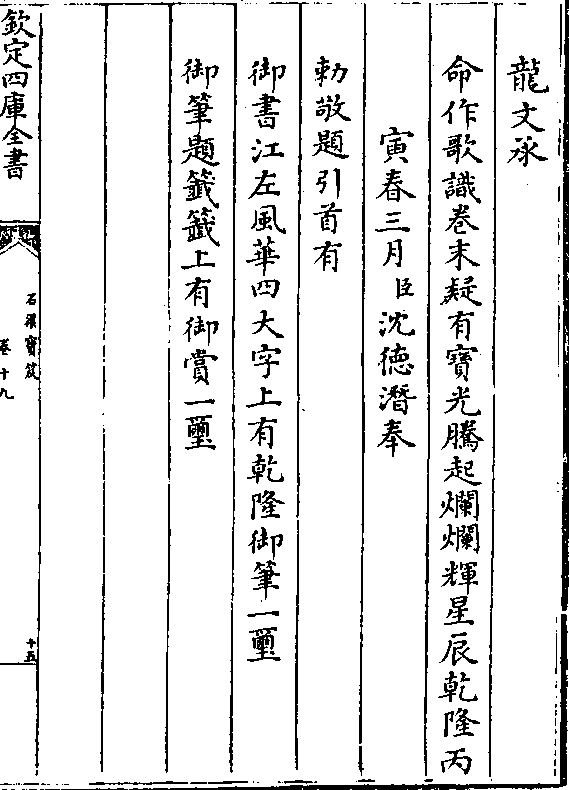 龍文承
命作歌識卷末疑有寶光騰起爛爛輝星辰乾隆丙
寅春三月臣沈德潛奉
勅敬題引首有
御書江左風華四大字上有乾隆御筆一璽
御筆題籤籤上有御賞一璽
欽定四庫全書
石渠寶笈
卷十九
十五